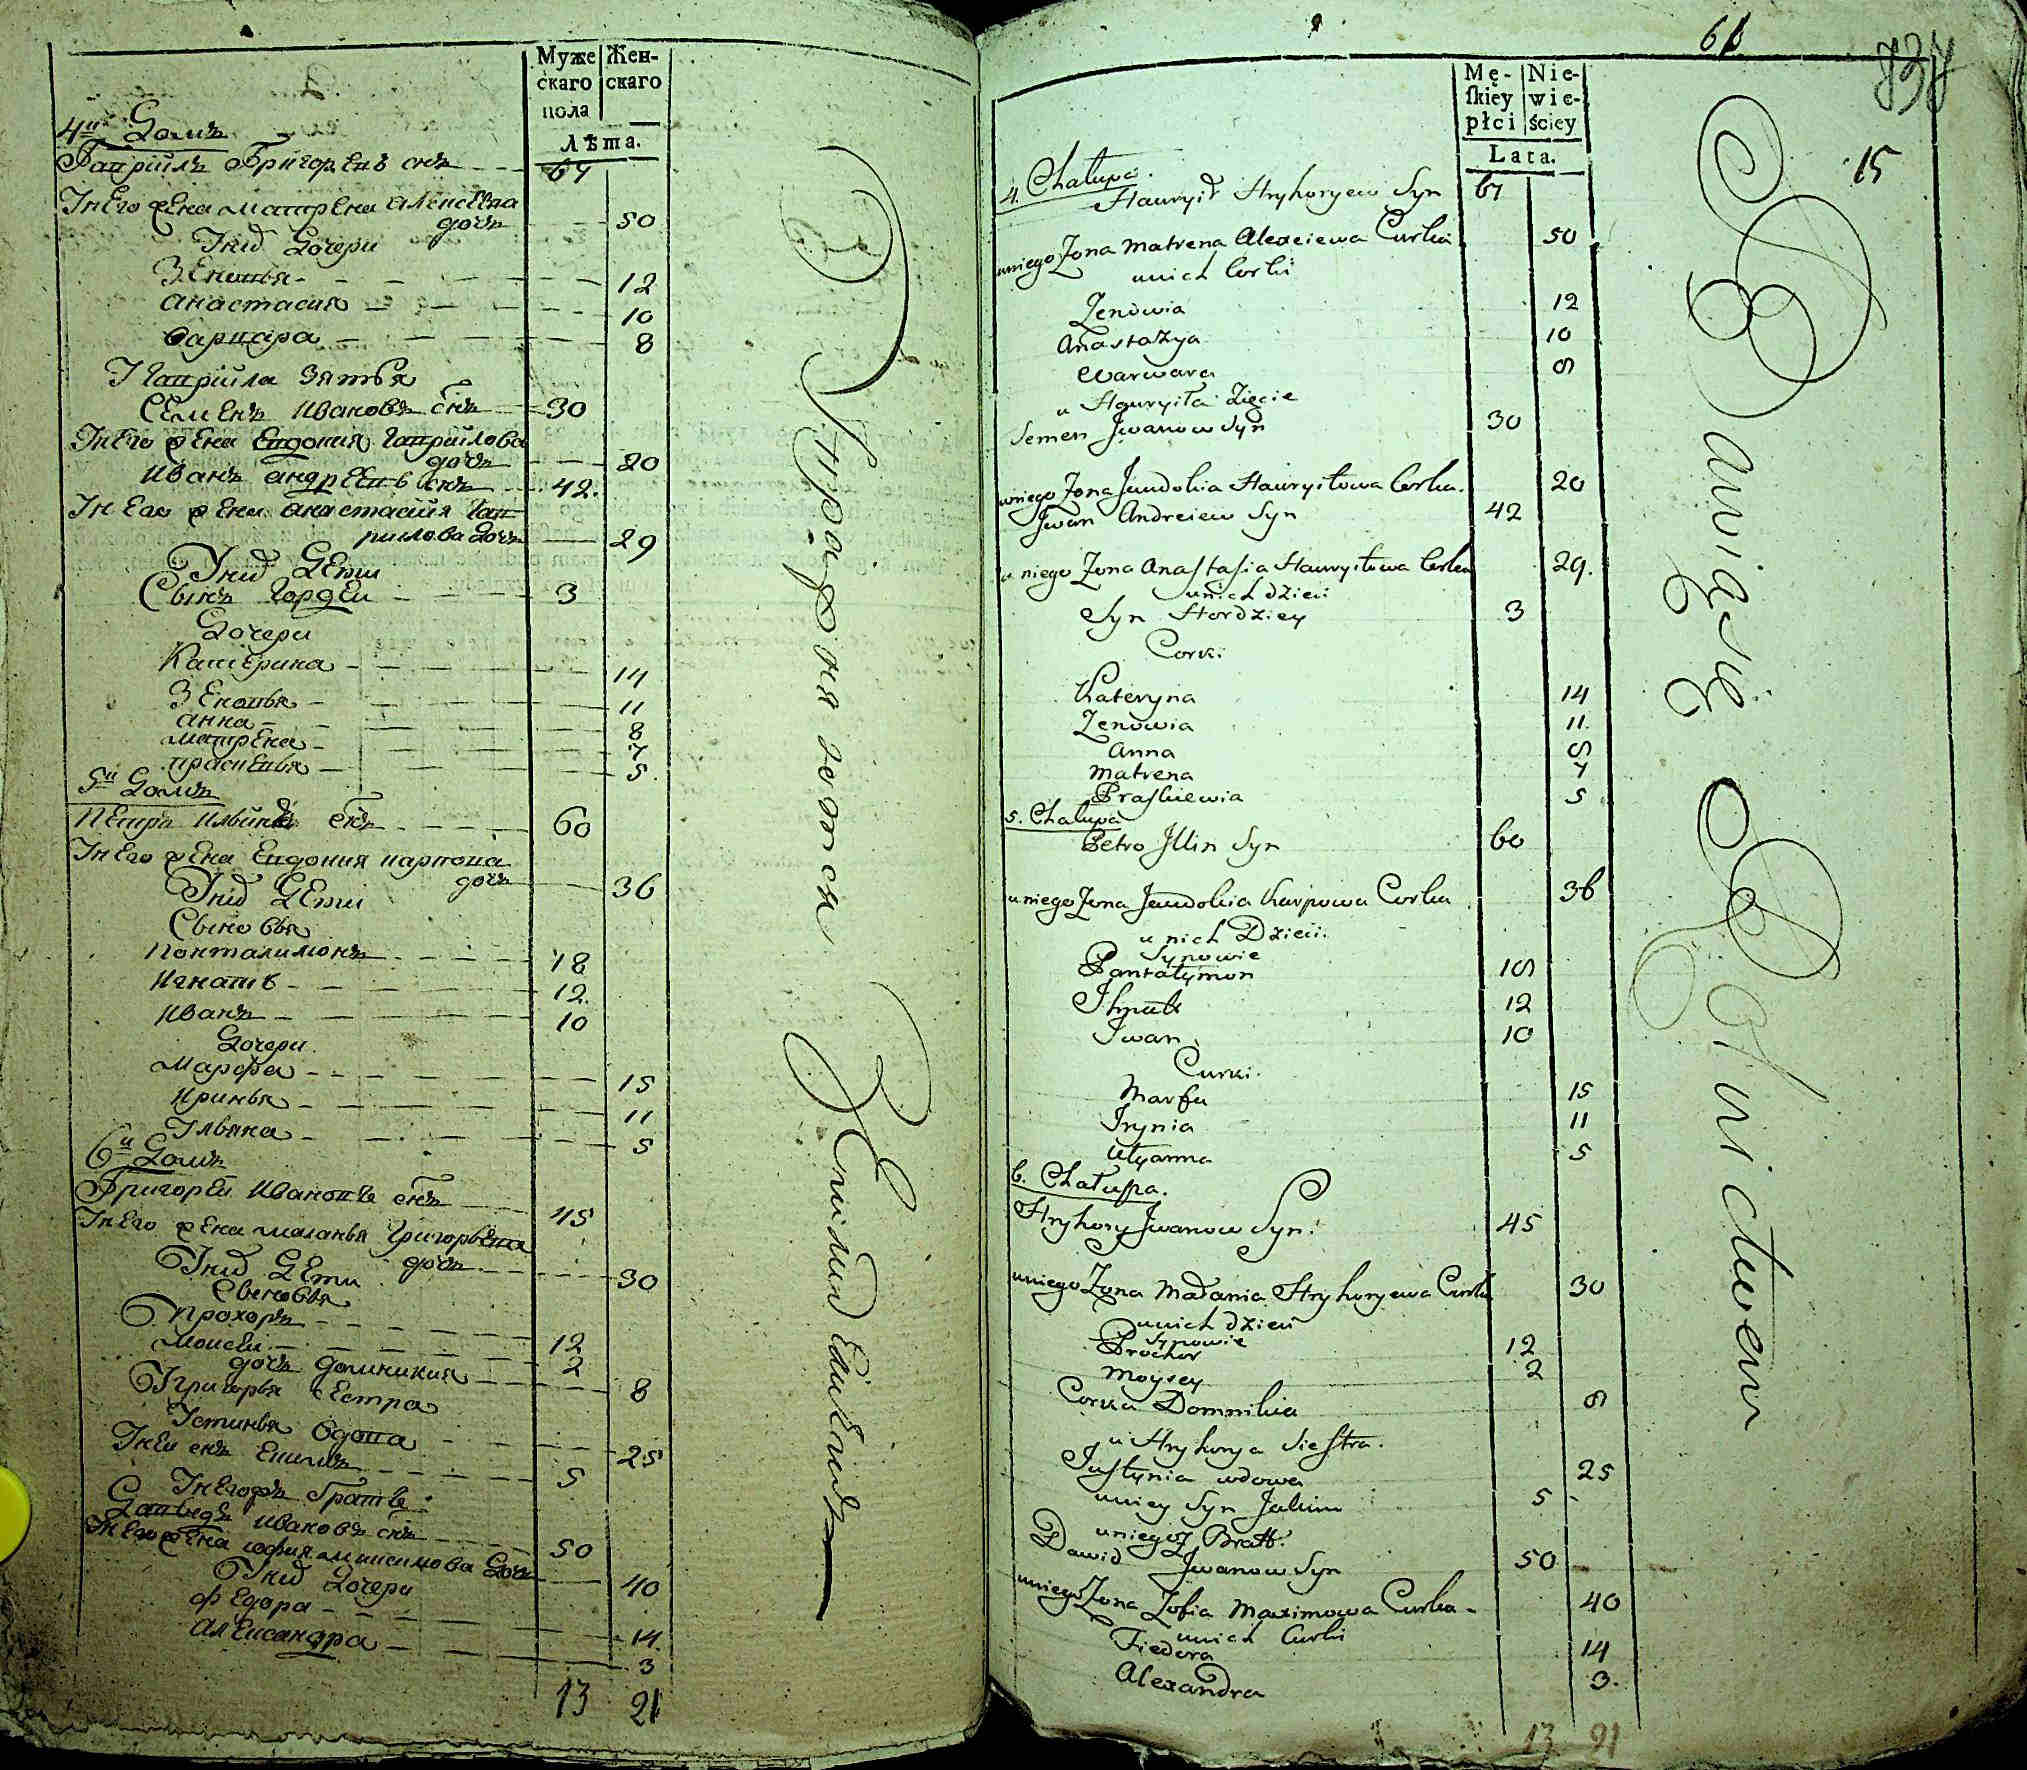 Муже Жен-
скаго скаго
пола
Лѣта.
4й Домъ
Гаврiилъ Григорьевъ снъ 67
Унего жена матрена алексеева
дочь 50
Унихъ Дочери
Зеновья 12
анастасия 10
варвара 8
У Гаврiила Зятья
Семенъ ивановъ снъ 30
Унего жена Евдокия Гаврилова
дочь 20
иванъ андреевъ снъ 42.
Унего жена анастасия Гав
рилова дочь 29
Унихъ Дети
Сынъ Гордеи 3
Дочери
Катерина 14
Зеновья 11
анна 8
матрена 7
прасковья 5.
5й Домъ
петръ ильинъ снъ 60
Унего жена Евдокия карпова
дочь 36
Унихъ Дети
Сыновья
понталимонъ 18
игнатъ 12.
иванъ 10
Дочери
марфа 15
иринья 11
Ульяна 5
6й Домъ
Григореи ивановъ снъ 45
Унего жена маланья Григорьева
дочь 30
Унихъ Дети
Сыновья
прохоръ 12
моисеи 2
дочь домникия 8
У Григорья Сестра
Устинья вдова 25
Унеи снъ Екимъ 5
Унегожъ братъ
Давыдъ ивановъ снъ 50
Унего жена софия максимова дочь 40
Унихъ Дочери
федора 14.
александра 3
13 21
61 737
15
Mę- Nie-
ſkiey wie-
płci ściey
Lata.
4. Chałupa.
Hauryił Hryhoryew Syn 67
uniego Zona Matrena Alexeiewa Curka 50
unich Corki
Zenowia 12
Anastazya 10
Warwara 8
u Hauryiła Zięcie
Semen Jwanow Syn 30
uniego Zona Jewdokia Hauryiłowa Corka. 20
Jwan Andreiew Syn 42
u niego Zona Anastasia Hauryiłowa Corka 29.
unich dzieci
Syn Hordziey 3
Corki
Kateryna 14
Zenowia 11.
Anna 8
Matrena 7
Praskiewia 5
5. Chałupa
Petro Jllin Syn 60
uniego Zona Jewdokia Karpowa Corka 36
u nich Dzieci.
Synowie
Pantałymon 18
Jhnatt 12
Jwan 10
Curki.
Marfa 15
Jrynia 11
Ulyanna 5
6. Chałupa.
Hryhory Jwanow Syn. 45
uniego Zona Małania Hryhoryewa Curka 30
unich dzieci
Synowie
Prochor 12
Moysey 2
Corka Domnikia 8
u Hryhorya Siestra.
Justynia wdowa 25
uniey Syn Jakim 5
uniegoż Bratt.
Dawid Jwanow Syn 50
uniego Zona Zofia Maximowa Curka 40
unich Curki
Fiedora 14
Alexandra 3.
13 21